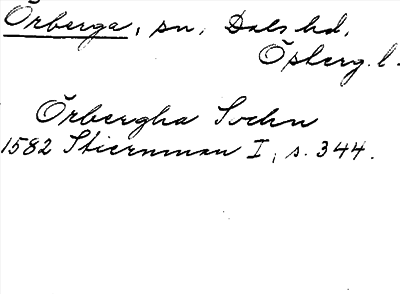 Örberga, sn, Dals hd,
Östberg. l.
Örbergha Sochn
1582 Stiernman I, s. 344.